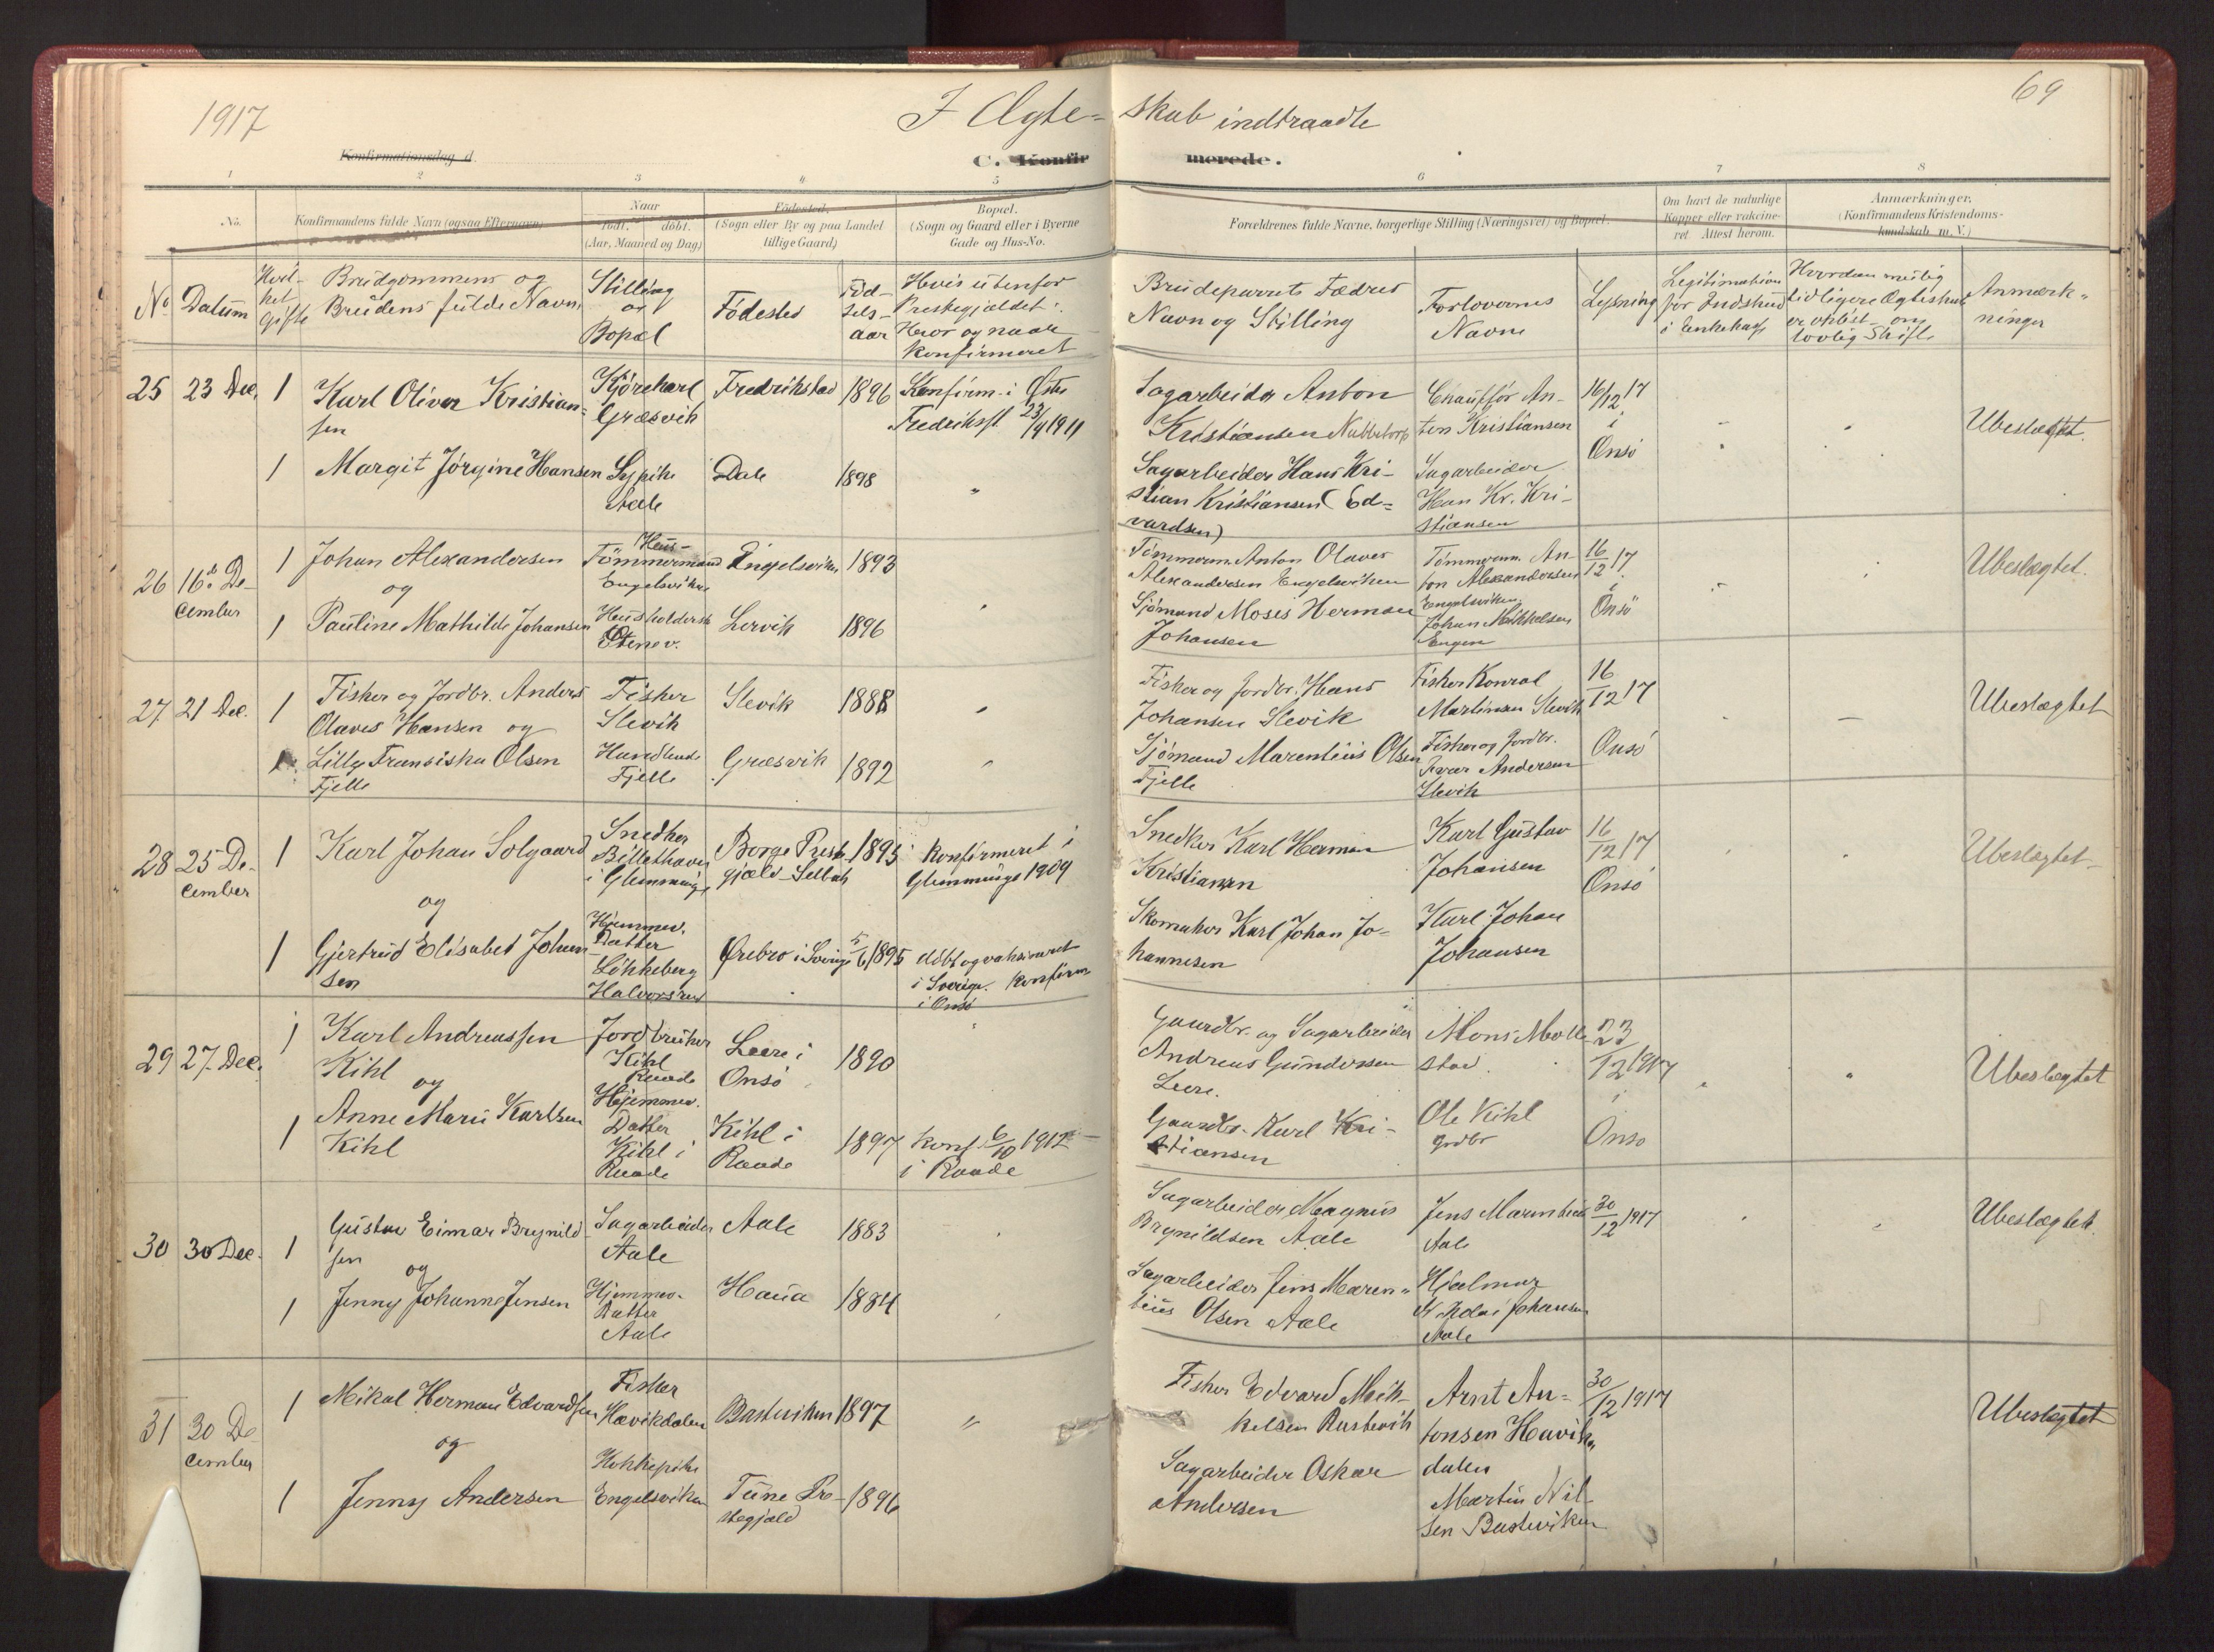 1917
I Ægte=
skab indtraadte
69
Konfirmationsdag d.
C. Konfir
merede.
1 2 3 4 5
6 7 8
No.
Konfirmandens fulde Navn (ogsaa Efternavn)
Naar
født. døbt.
(Aar, Maaned og Dag)
Fødested.
(Sogn eller By og paa Landet
tillige Gaard)
Bopæl.
(Sogn og Gaard eller i Byerne
Gade og Hus-No.
Forældrenes fulde Navne, borgerlige Stilling (Næringsvei) og Bopæl.
Om havt de naturlige
Kopper eller vakcine-
ret. Attest herom.
Anmærkninger.
(Konfirmandens Kristendoms-
kundskab m. V.)
No
Datum
Hvil-
ket
Gifte
Brudgommens og
Brudens fulde Navn
Stilling
og
Bopæl
Födested
Föd-
sels-
aar
Hvis utenfor
Prestegjældet:
Hvor og naar
konfirmeret
Brudeparrets Fædres
Navn og Stilling
Forlovernes
Navne
Lysning
Legitimation
for Indskud
i Enkekasse
Hvordan mulig
tidligere Ægteskab
er oplöst - om
lovlig Skifte
Anmærk-
ninger
25
23 Dec.
1
Karl Oliver Kristian-
sen
Kjörekarl
Græsvik
Fredrikstad
1896
Konfirm. i Østre
Fredrikst 23/4 1911
Sagarbeider Anton
Kristiansen Nabbetorp
Chauffør An-
ton Kristiansen
16/12 17
i
Onsö
Ubeslægtet.
1
Margit Jörgine Hansen
Sypike
Aale
Dale
1898
"
Sagarbeider Hans Kri-
stian Kristiansen (Ed-
vardsen)
Sagarbeider
Han Kr. Kri-
stiansen
26
16de De-
cember
1
Johan Alexandersen
og
Hus-
Tömmermand
Engelsviken
Engelsviken
1893
Tömmerm. Anton Olaves
Alexandersen Engelsviken
Tömmerm. An-
ton Alexandersen
Engelsviken
16/12 17
i
Onsö
Ubeslægtet.
1
Pauline Mathilde Johansen
Husholderske
Lervik
1896
Sjömand Moses Herman
Johansen
Johan Mikkelsen
Engen
27
21 Dec.
1
Fisker og Jordbr. Anders
Olaves Hansen og
Fisker
Slevik
Slevik
1888
Fisker og Jordbr. Hans
Johansen Slevik
Fisker Konrad
Martinsen Slevik
16/12 17
Onsö
Ubeslægtet
Lilly Fransiska Olsen
Fjelle
Fjelle
Græsvik
1892
Sjömand Marentius Olsen
Fjelle
Fisker og Jordbr.
Ivar Andersen
Slevik
28
25 De-
cember
1
Karl Johan Solgaard
og
Snedker
i Glemminge
Borge Preste-
gjæld - Selbak
1895
Konfirmeret i
Glemminge 1909
Snedker Karl Herman
Kristiansen
Karl Gustav
Johansen
16/12 17
Onsö
Ubeslægtet
1
Gjertrud Elisabet Johan-
sen
Hjemmev.
Datter
Lökkeberg
Halvorsrud
Ørebro i Sverige
5/6 1895
döbt og vaksineret
i Sverige. Konfirm.
i Onsö
Skomaker Karl Johan Jo-
hannesen
Karl Johan
Johansen
29
27 Dec.
1
Karl Andreassen
Kihl
og
Jordbruker
Kihl
Raade
Leere i
Onsö
1890
Gaardbr. og Sagarbeider
Andreas Gundersen
Leere.
Mons Molle
stad
23/12 1917
i
Onso
Ubeslægtet
1
Anne Marie Karlsen
Kihl
Hjemmev.
Datter
Kihl i
Raade
Kihl i
Raade
1897
Konf. 6/10 1912
i Raade
Gaardbr. Karl Kri-
stiansen
Ole Kihl
grdbr
30
30 Dec.
1
Gustav Eimar Brynild
sen
og
Sagarbeider
Aale
Aale
1883
Sagarbeider Magnus
Brynildsen Aale
Jens Marentius
Aale
30/12 1917
Ubeslægtet.
1
Jenny Johanne Jensen
Hjemmev.
Datter
Aale
Haua
1884
Sagarbeider Jens Maren-
tius Olsen Aale
Hjalmar
Nikolai Johansen
Aale
31
30 De
cember
1
Mikal Herman Edvardsen
og
Fisker
Hævikdalen
Basteviken
1897
"
Fisker Edvard Mik-
kelsen Bastevik
Arnt An-
tonsen Hævik-
dalen
30/12 1917
Ubeslægtet
1
Jenny Andersen
Kokkepike
Engelsviken
Tune Pre-
stegjæld
1896
Sagarbeider Oskar
Andersen
Martin Nil-
sen Basteviken